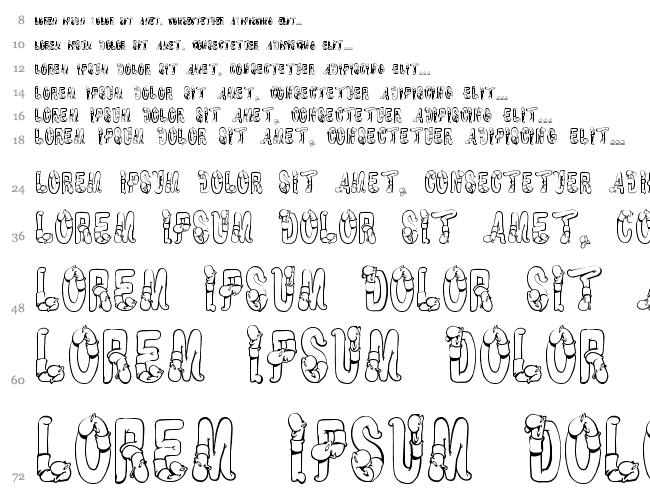 8 LOREM IPSUM DOLOR SIT AMET, CONSECTETUER ADIPISCING ELIT...
10 LOREM IPSUM DOLOR SIT AMET, CONSECTETUER ADIPISCING ELIT...
12 LOREM IPSUM DOLOR SIT AMET, CONSECTETUER ADIPISCING ELIT...
14 LOREM IPSUM DOLOR SIT AMET, CONSECTETUER ADIPISCING ELIT...
16 LOREM IPSUM DOLOR SIT AMET, CONSECTETUER ADIPISCING ELIT...
18 LOREM IPSUM DOLOR SIT AMET, CONSECTETUER ADIPISCING ELIT...
24 LOREM IPSUM DOLOR SIT AMET, CONSECTETUER ADI
36 LOREM IPSUM DOLOR SIT AMET, CO
48 LOREM IPSUM DOLOR SIT A
60 LOREM IPSUM DOLOR
72 LOREM IPSUM DOL